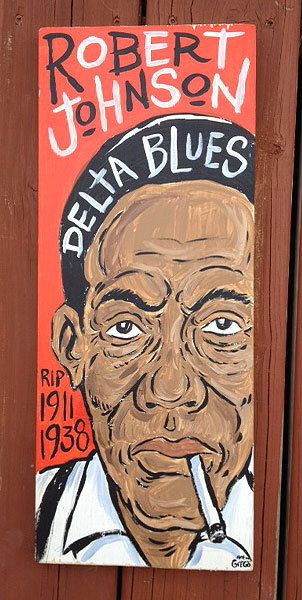 ROBERT
JOHNSON
DELTA BLUES
RIP
1911
1938